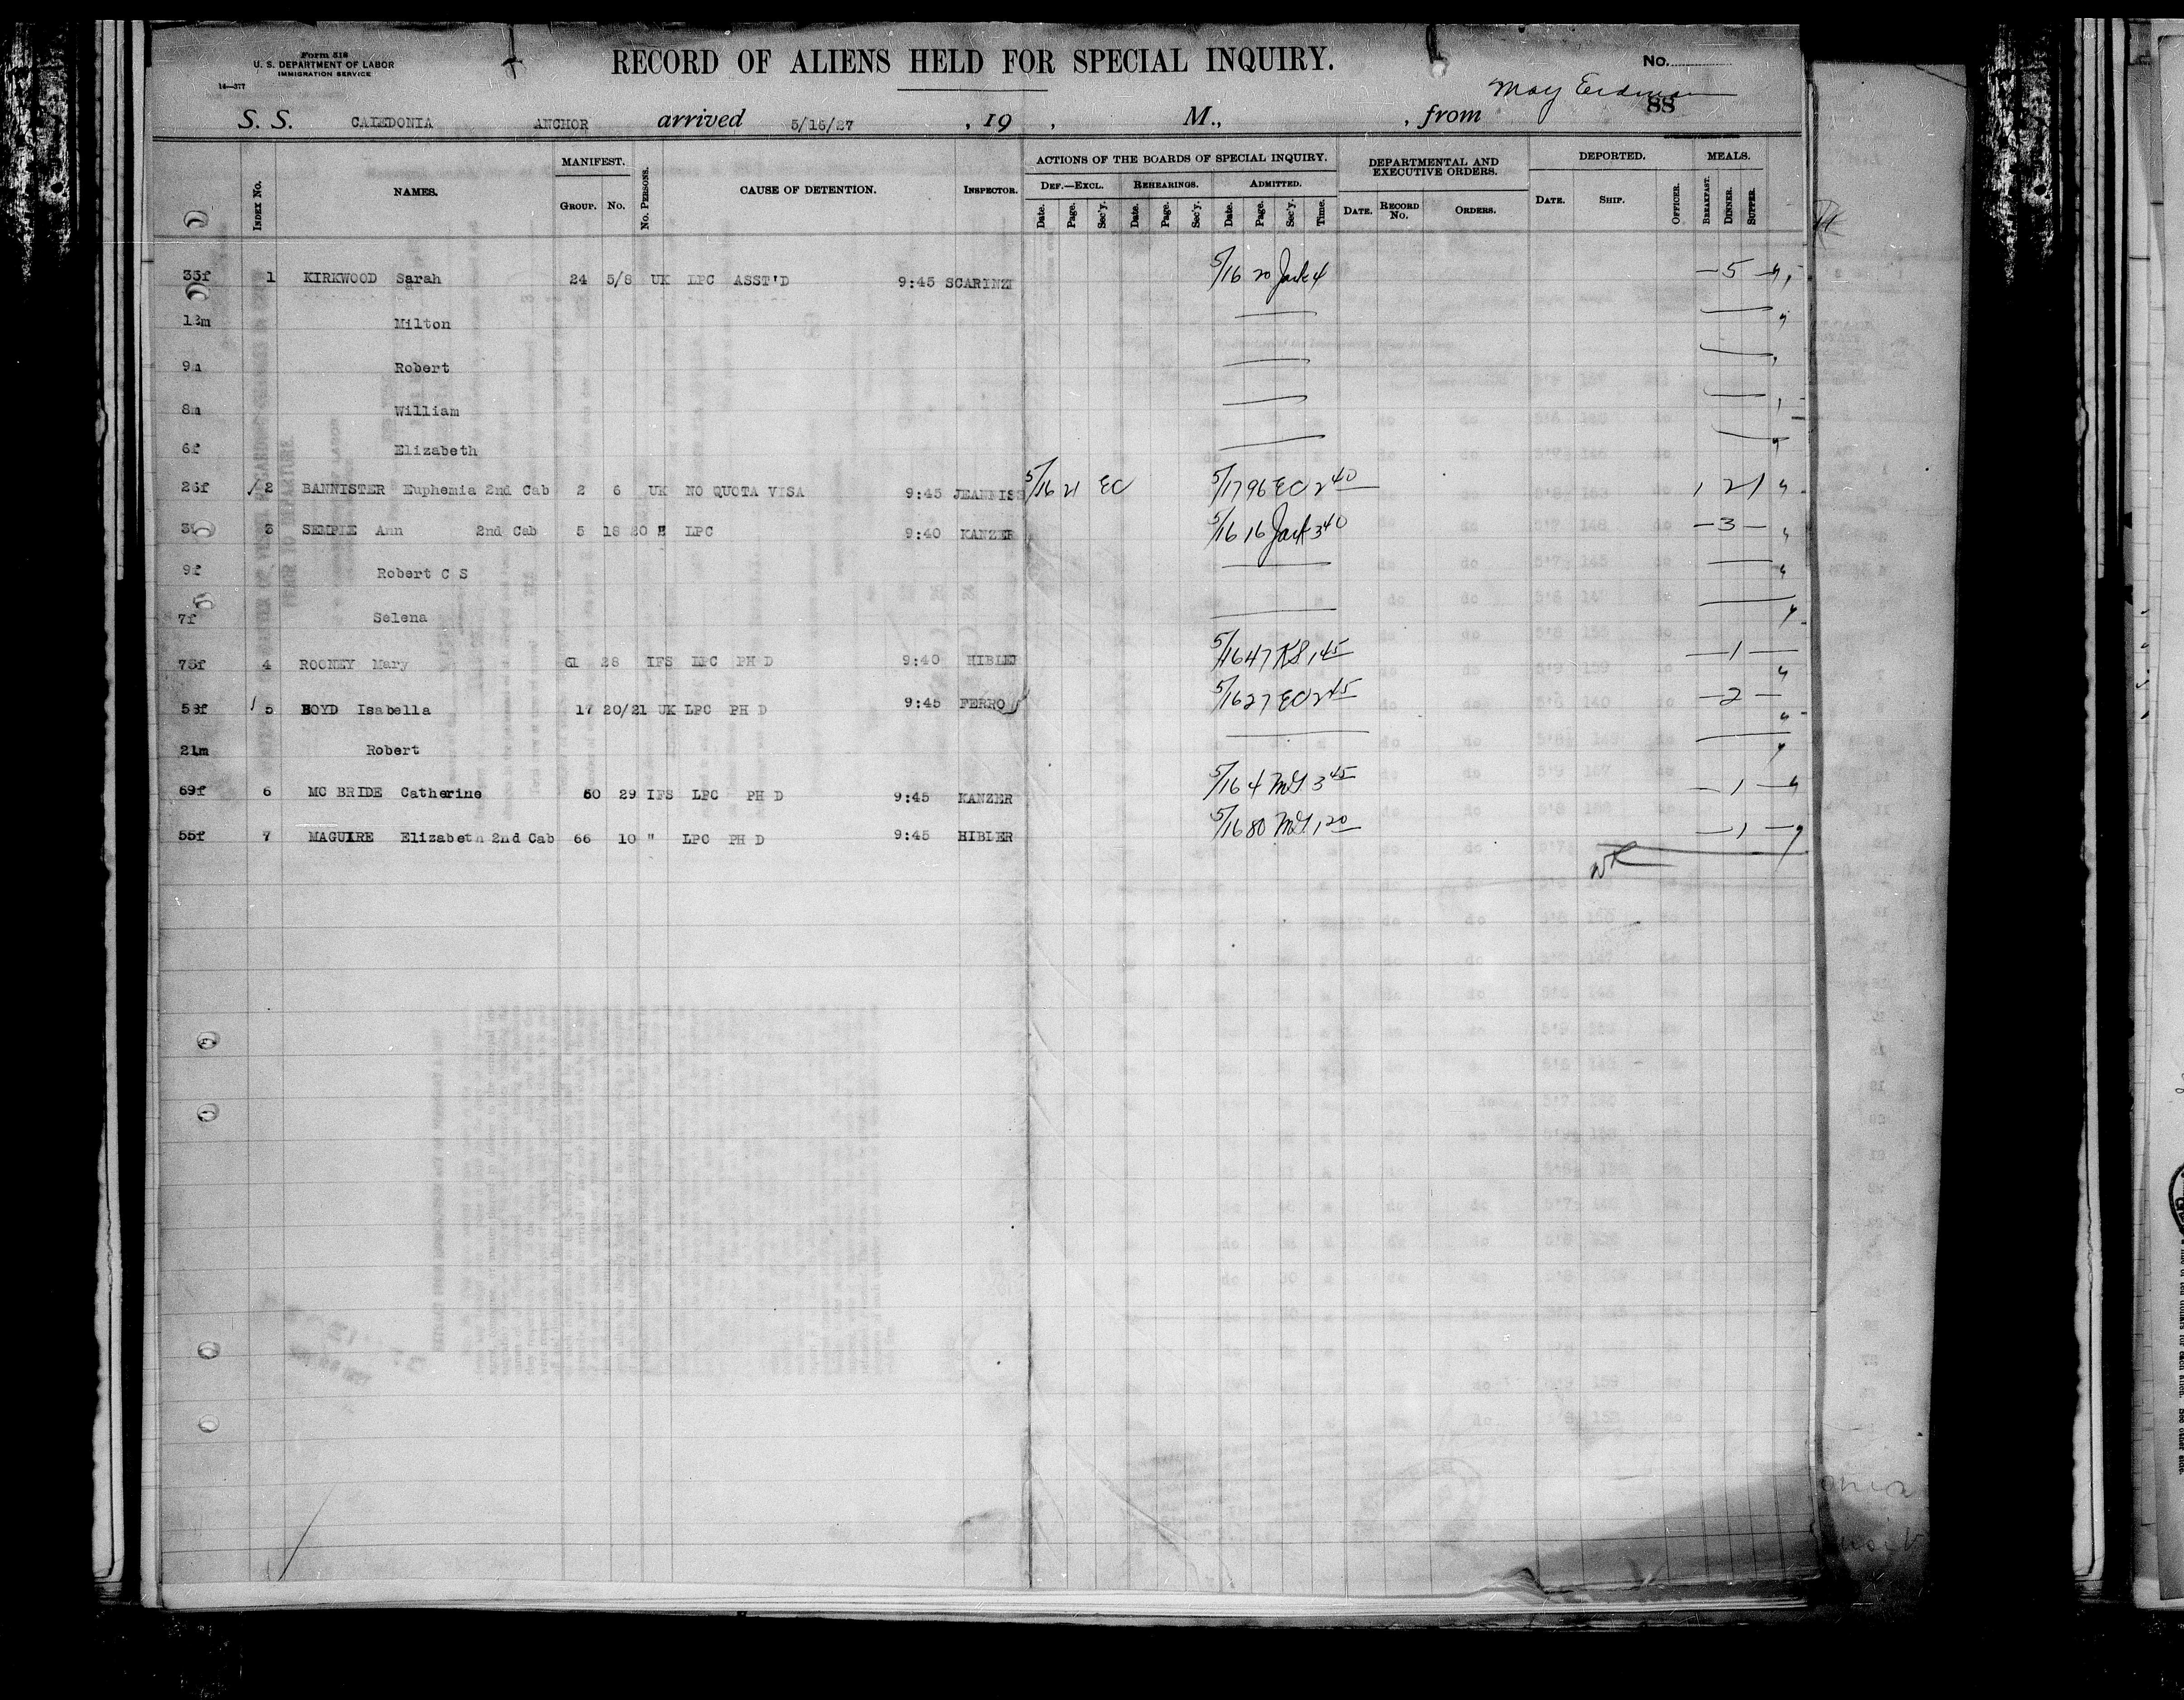 Form 518
U. S. DEPARTMENT OF LABOR
IMMIGRATION SERVICE
14—377
RECORD OF ALIENS HELD FOR SPECIAL INQUIRY.
No.
May Erdman
88
S. S. CALEDONIA ANCHOR arrived 5/15/27 , 19 , M., , from
INDEX No. NAMES. MANIFEST. GROUP. No. No. PERSONS. CAUSE OF DETENTION. INSPECTOR.
ACTIONS OF THE BOARDS OF SPECIAL INQUIRY. DEF.—EXCL. Date. Page. Sec'y. REHEARINGS. Date. Page. Sec'y. ADMITTED. Date. Page. Sec'y. Time.
DEPARTMENTAL AND EXECUTIVE ORDERS. DATE. RECORD No. ORDERS. DEPORTED. DATE. SHIP. OFFICER. MEALS. BREAKFAST. DINNER. SUPPER.
35f 1 KIRKWOOD Sarah 24 5/8 UK LPC ASST'D 9:45 SCARINZI 5/16 20 Jack 4 — 5 —
12m Milton
9m Robert
8m William
6f Elizabeth
26f 2 BANNISTER Euphemia 2nd Cab 2 6 UK NO QUOTA VISA 9:45 JEANNISS 5/16 21 EC 5/17 96 EC 2 40 1 2 1
3 SEMPLE Ann 2nd Cab 5 18 20 E LPC 9:40 KANZER 5/16 16 Jack 3 40 — 3 —
9f Robert C S
7f Selena
75f 4 ROONEY Mary 61 28 IFS LPC PH D 9:40 HIBLER 5/16 47 1 45 — 1 —
58f 5 BOYD Isabella 17 20/21 UK LPC PH D 9:45 FERRO 5/16 27 EC 2 45 — 2 —
21m Robert
69f 6 MC BRIDE Catherine 60 29 IFS LPC PH D 9:45 KANZER 5/16 4 3 45 — 1 —
55f 7 MAGUIRE Elizabeth 2nd Cab 66 10 " LPC PH D 9:45 HIBLER 5/16 80 1 20 — 1 —